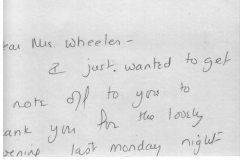 ear Mrs. Wheeler -
I just wanted to get
note off to you to
ank you for the lovely
vening last monday night